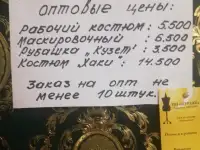 оптовые цены:
Рабочий костюм: 5.500
Маскировочный: 6.500
Рубашка "Кузет": 3.600
Костюм "Хаки": 14.500
Заказ на опт не
менее 10 штук.